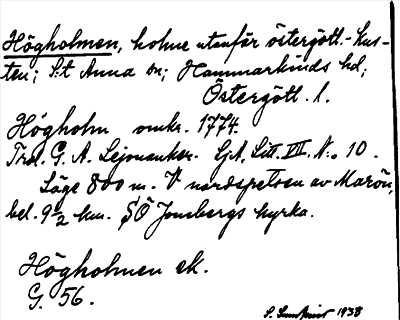 Högholmen, holme utanför östergötl.-kus-
ten; S:t Anna sn; Hammarkinds hd;
Östergötl. l.
Högholm omkr. 1774.
G. A. Lejonanckar. Lit. VII, N:o 10.
Läge 800 m. V nordspetsen av Marön,
bel. 9½ km. SÖ Jonsbergs kyrka.
Högholmen ek.
G. 56.
1938